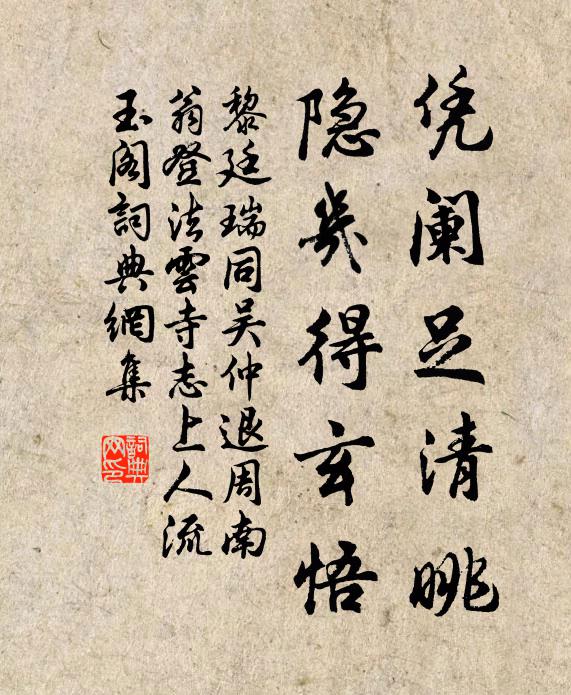 凭阑足清眺
隐几得玄悟
黎廷瑞同吴仲退周南
翁登法雲寺志上人流
玉阁詞典網集
詞典